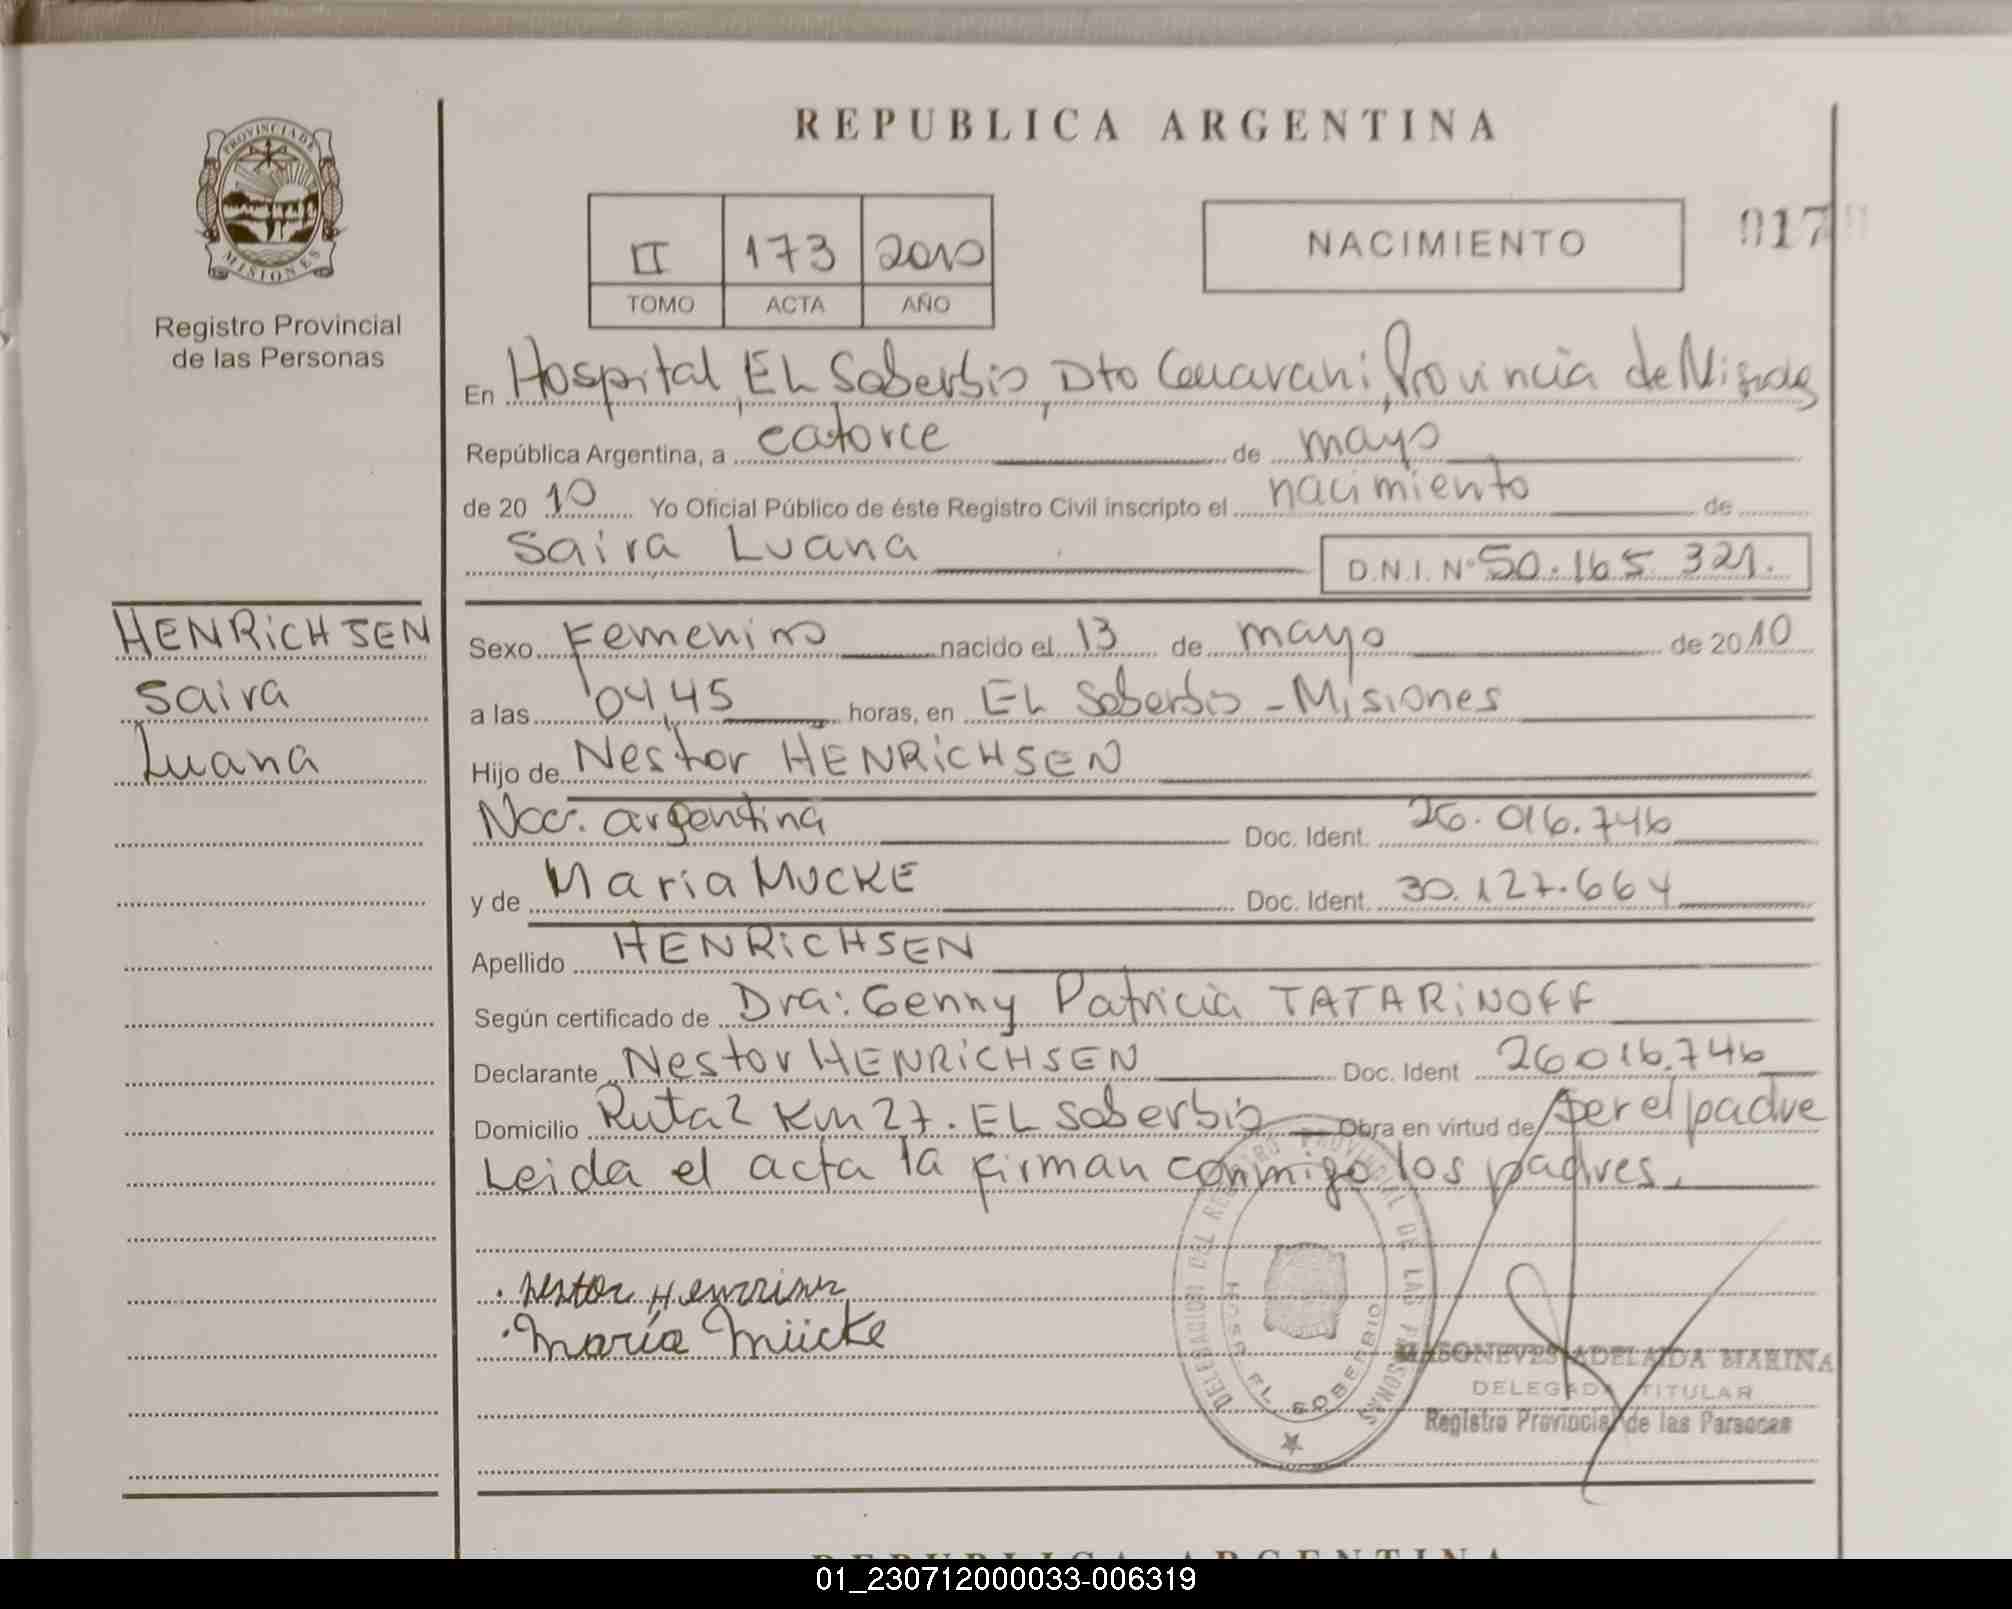 REPUBLICA ARGENTINA
PROVINCIA DE MISIONES
Registro Provincial
de las Personas
II 173 2010
TOMO ACTA AÑO
NACIMIENTO
017
En Hospital, EL Soberbio, Dto Guarani, Provincia de Misiones
República Argentina, a catorce de mayo
de 2010 Yo Oficial Público de éste Registro Civil inscripto el nacimiento de
Saira Luana D.N.I. Nº 50.165.321.
HENRiCHSEN
Saira
Luana
Sexo Femenino nacido el 13 de mayo de 2010
a las 04,45 horas, en EL Soberbio - Misiones
Hijo de Nestor HENRiCHSEN
Nac. argentina Doc. Ident. 26.016.746
y de Maria MUCKE Doc. Ident. 30.127.664
Apellido HENRiCHSEN
Según certificado de Dra: Genny Patricia TATARiNOFF
Declarante Nestor HENRiCHSEN Doc. Ident 26016.746
Domicilio Ruta 2 Km 27. EL Soberbio Obra en virtud de ser el padre
Leida el acta la firman conmigo los padres.
Nestor
María Mücke
DELEGACION DEL REGISTRO PROVINCIAL DE LAS PERSONAS
HOSP. EL SOBERBIO
ADELAIDA MARINA
DELEGADA TITULAR
Registro Provincial de las Personas
REPUBLICA ARGENTINA
01_230712000033-006319